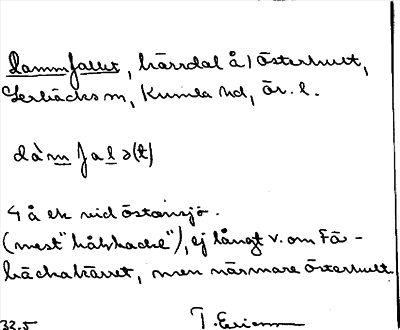 Dammfallet, kärrdal å 1 Österhult,
Lerbäcks sn, Kumla hd, Ör. l.
dàm fal ə(t)
4 å ek vid Östansjö.
(mest "kålhackel"), ej långt v. om Fä-
bäckakärret, men närmare Österhult
32.5 T. Ericsson